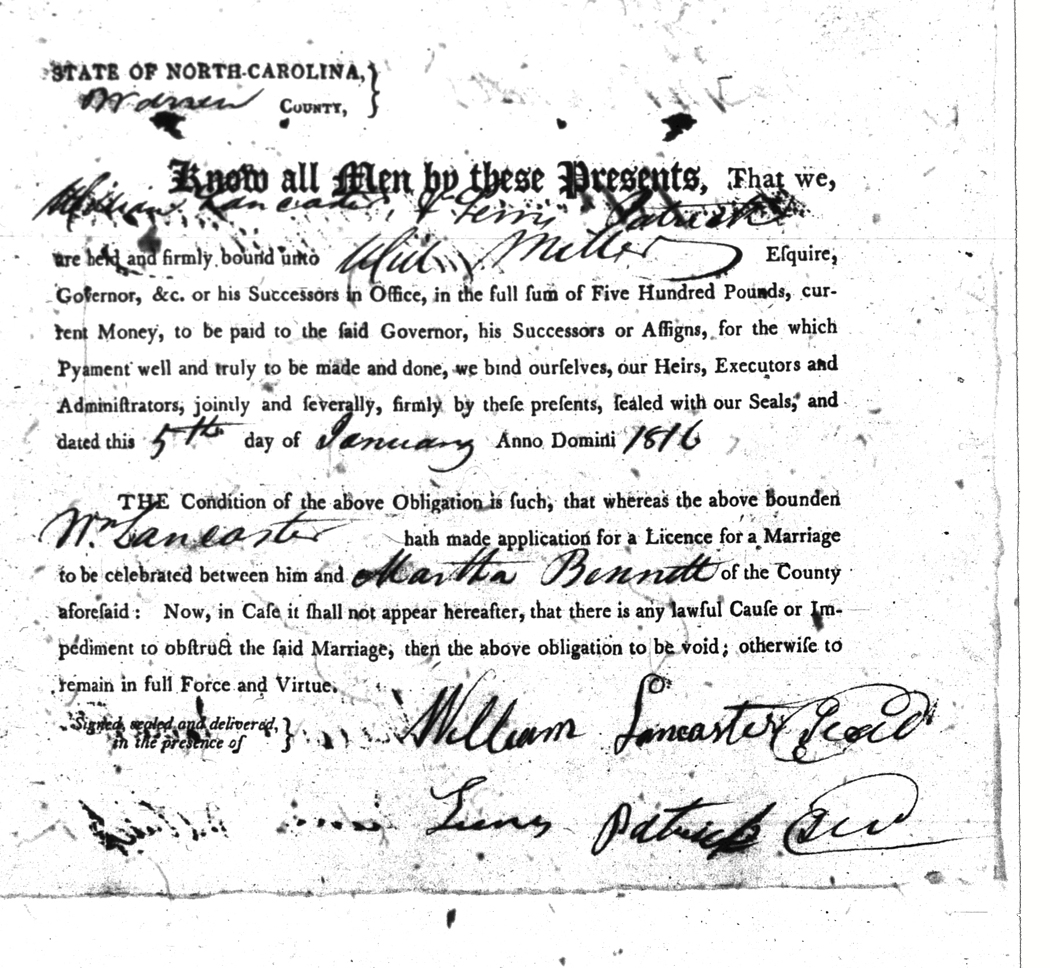 STATE OF NORTH-CAROLINA,
Warren COUNTY,
Know all Men by these Presents, That we,
William Lancaster, & Patrick
are held and firmly bound unto Miller Eſquire,
Governor, &c. or his Succeſſors in Office, in the full ſum of Five Hundred Pounds, cur-
rent Money, to be paid to the ſaid Governor, his Succeſſors or Aſſigns, for the which
Pyament well and truly to be made and done, we bind ourſelves, our Heirs, Executors and
Adminiſtrators, jointly and ſeverally, firmly by theſe preſents, ſealed with our Seals, and
dated this 5th day of January Anno Domini 1816
THE Condition of the above Obligation is ſuch, that whereas the above Bounden
Wm Lancaster hath made application for a Licence for a Marriage
to be celebrated between him and Martha Bennett of the County
aforeſaid: Now, in Caſe it ſhall not appear hereafter, that there is any lawful Cauſe or Im-
pediment to obſtruct the ſaid Marriage, then the above obligation to be void; otherwiſe to
remain in full Force and Virtue.
Signed, sealed and delivered,
in the presence of
William Lancaster Seal
Patrick